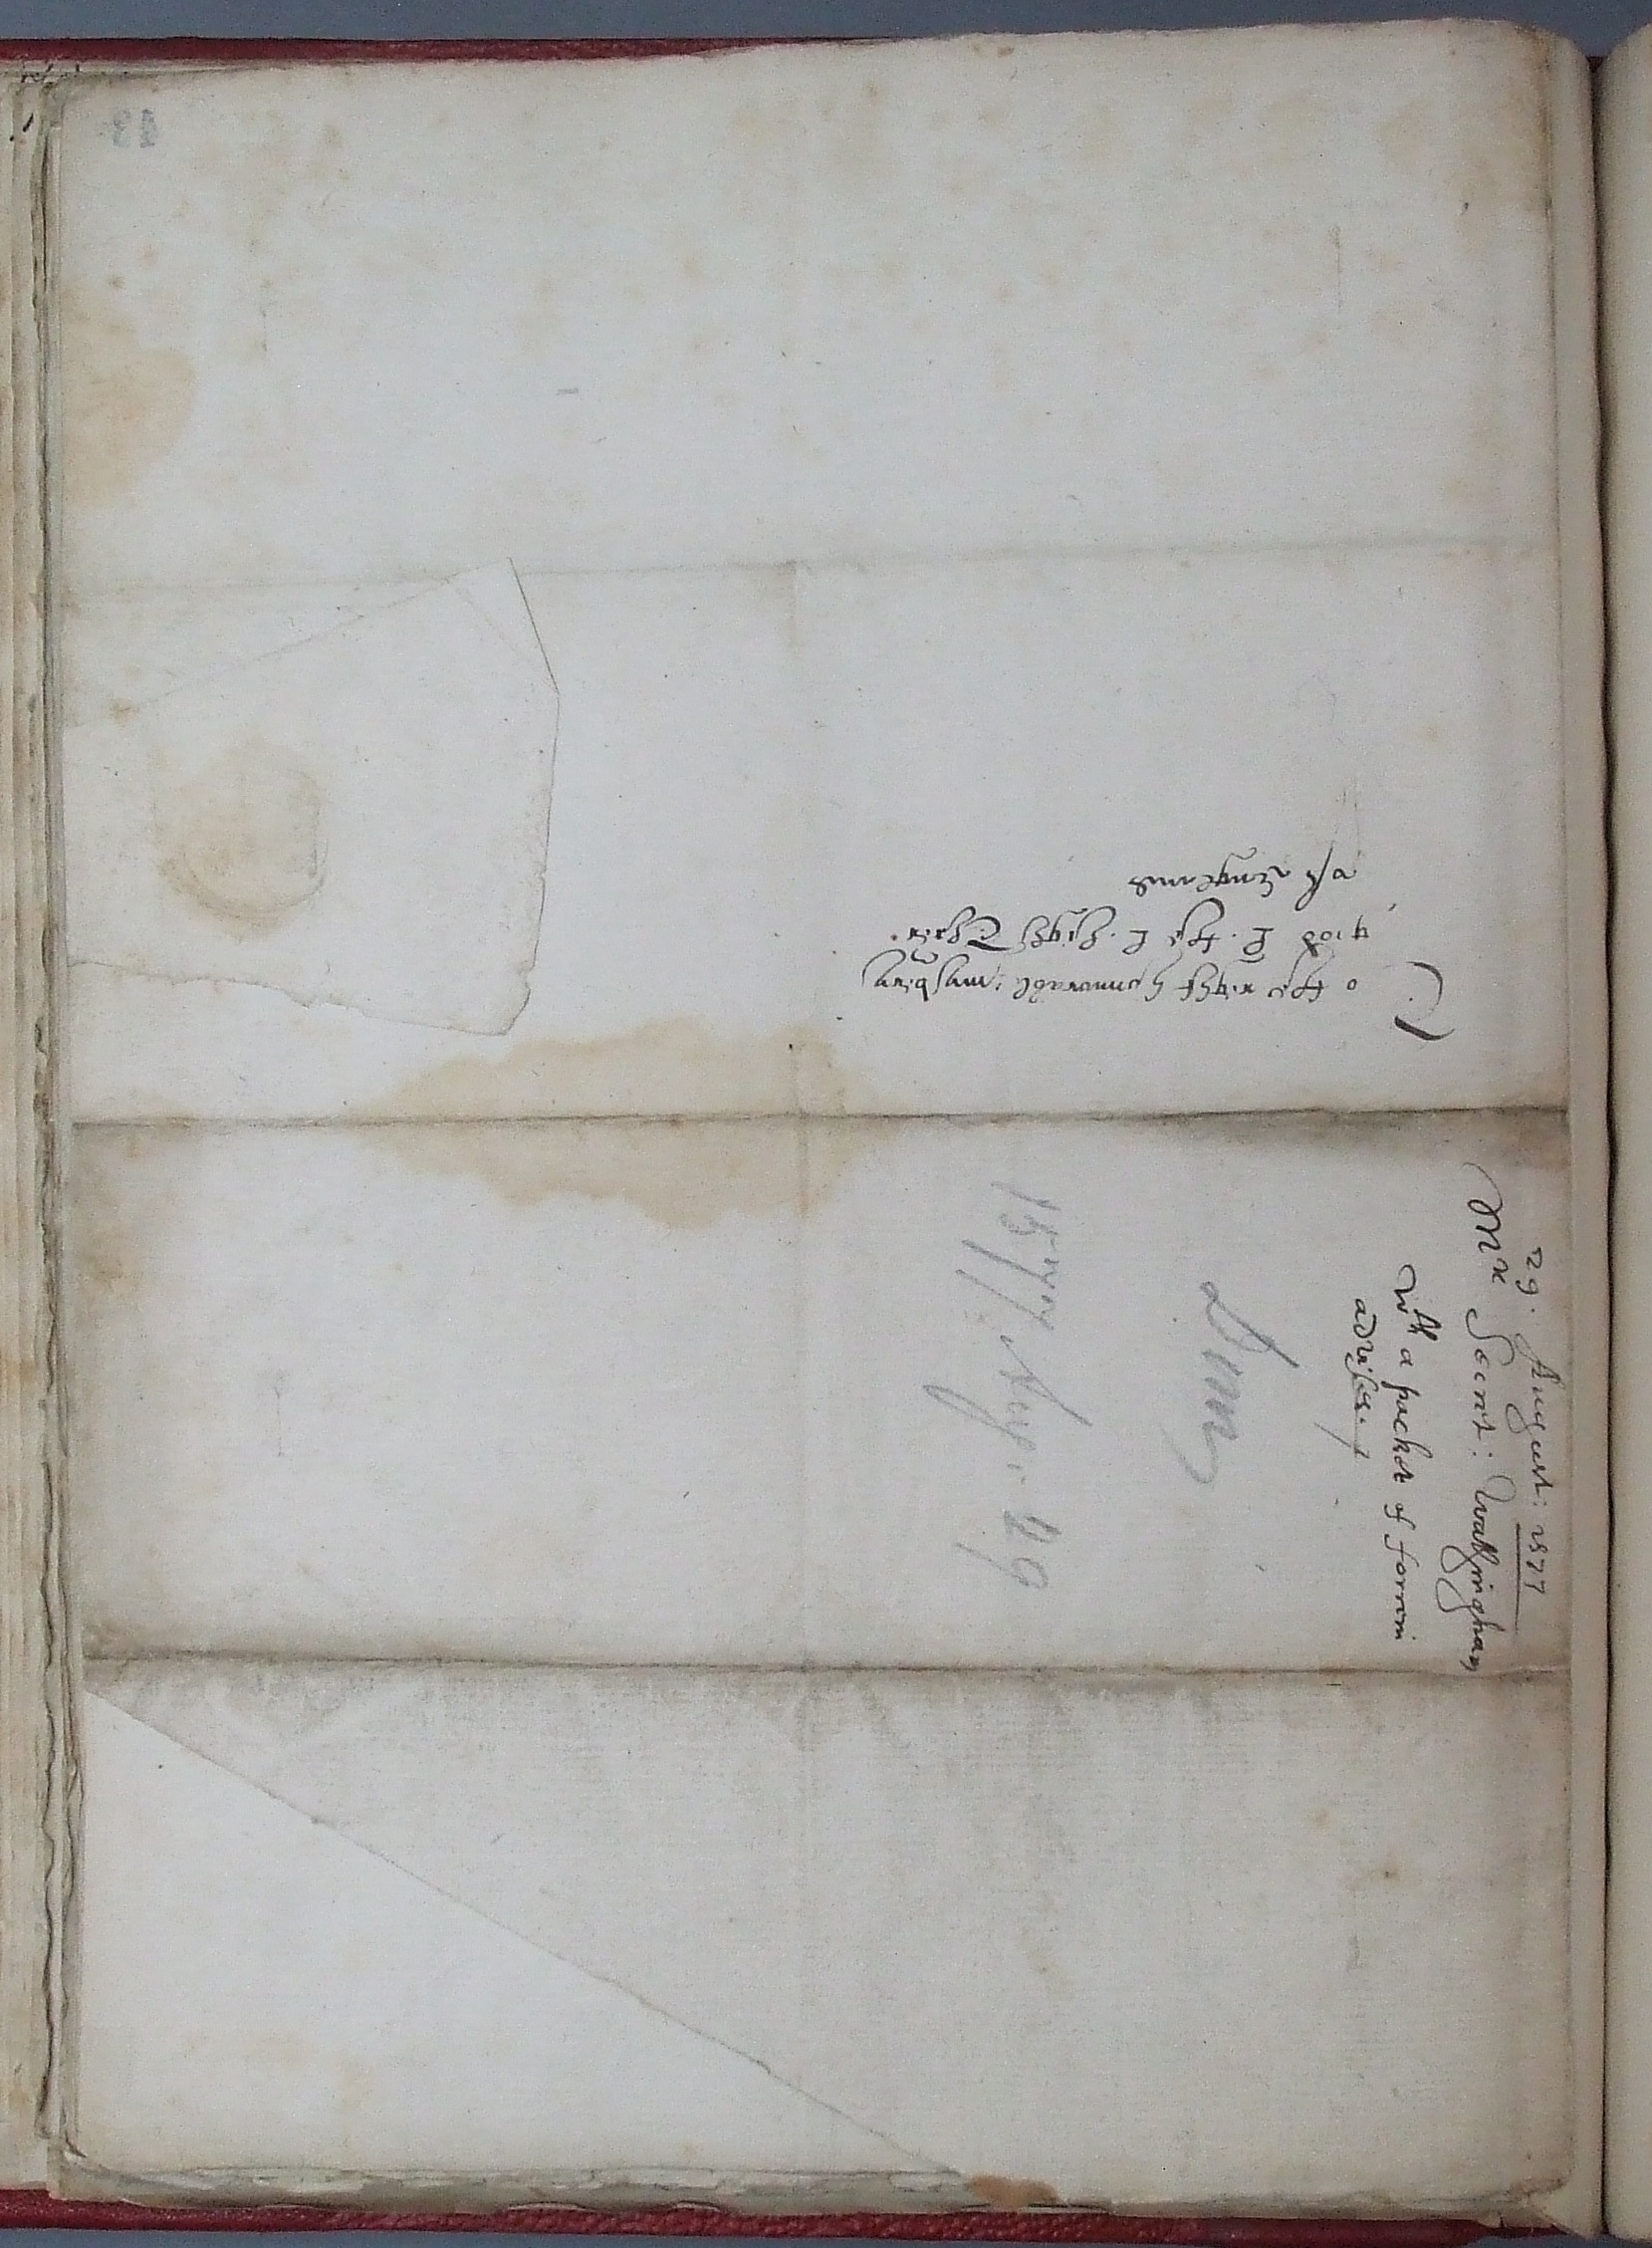 To the right honnorable: my verey
good L. the L. highe Thrẽr
off England
29. August: 1577
Mr Secret: Walsingham
wth a packet of forrein
advises.
Dom
1577 Aug. 29